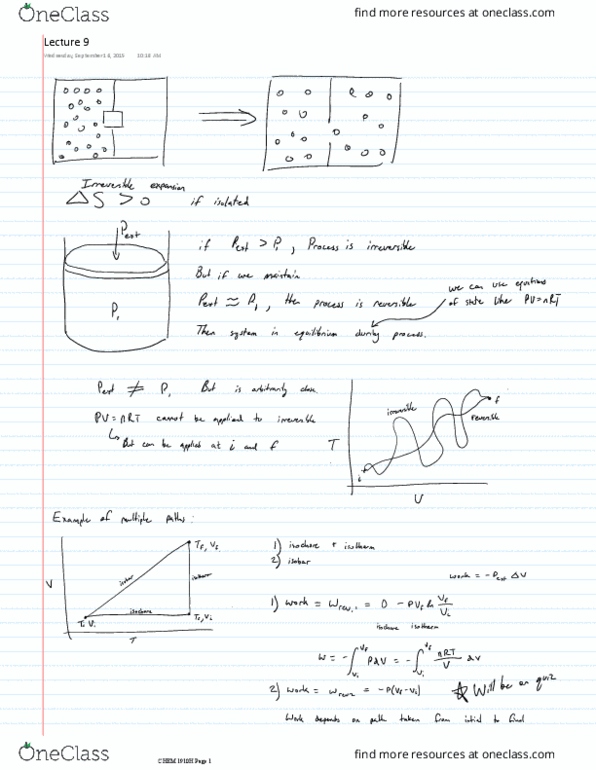 OneClass
find more resources at oneclass.com
Lecture 9
Wednesday, September 16, 2015 10:10 AM
Irreversible expansion
ΔS > 0 if isolated
Pext
P₁
if Pext > P₁, Process is irreversible
But if we maintain
Pext ≈ P₁, then process is reversible
Then system in equilibrium during process.
we can use equations
of state like PV=nRT
Pext ≠ P₁ But is arbitrarily close
PV=nRT cannot be applied to irreversible
↳ But can be applied at i and f
T
irreversible
reversible
i
f
V
Example of multiple paths:
V
T
isobar
isotherm
isochore
Tf, Vf
Tf, Vi
Ti Vi
1) isochore + isotherm
2) isobar
work = -Pext ΔV
1) work = Wrev,1 = 0 - PVf ln Vf/Vi
isochore isotherm
W = -∫ PdV = -∫ nRT/V dV
2) work = Wrev2 = -P(Vf-Vi)
☆ Will be on quiz
Work depends on path taken from initial to final
OneClass
CHEM 1910H Page 1
find more resources at oneclass.com